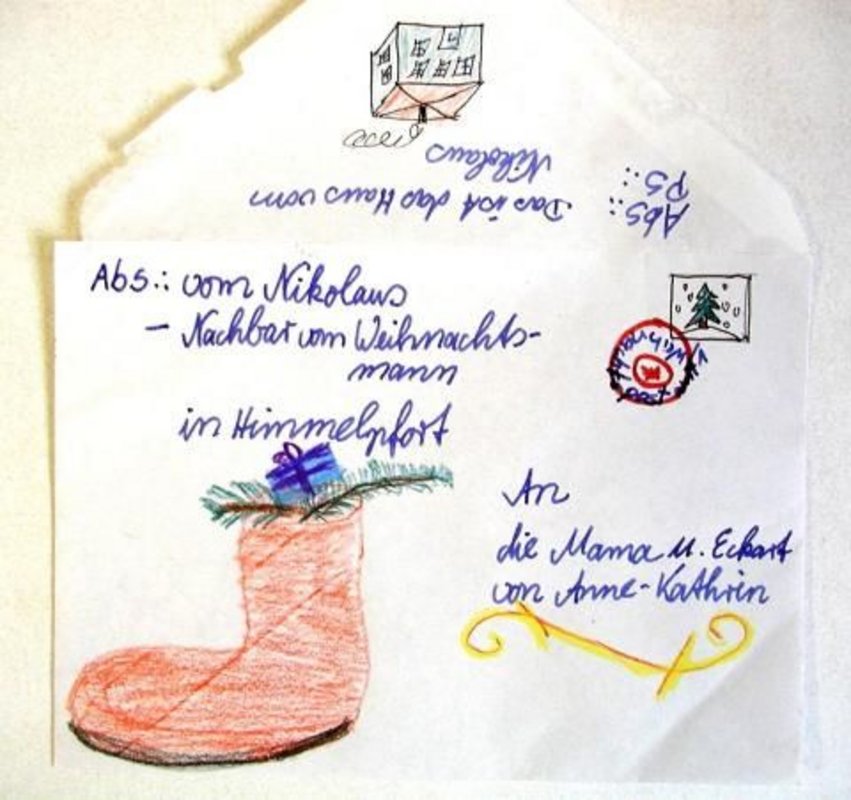 Abs.:
PS.:
Das ist das Haus vom
Nikolaus
Abs.: vom Nikolaus
- Nachbar vom Weihnachts-
mann
in Himmelpfort
An
die Mama u. Eckart
von Anne-Kathrin